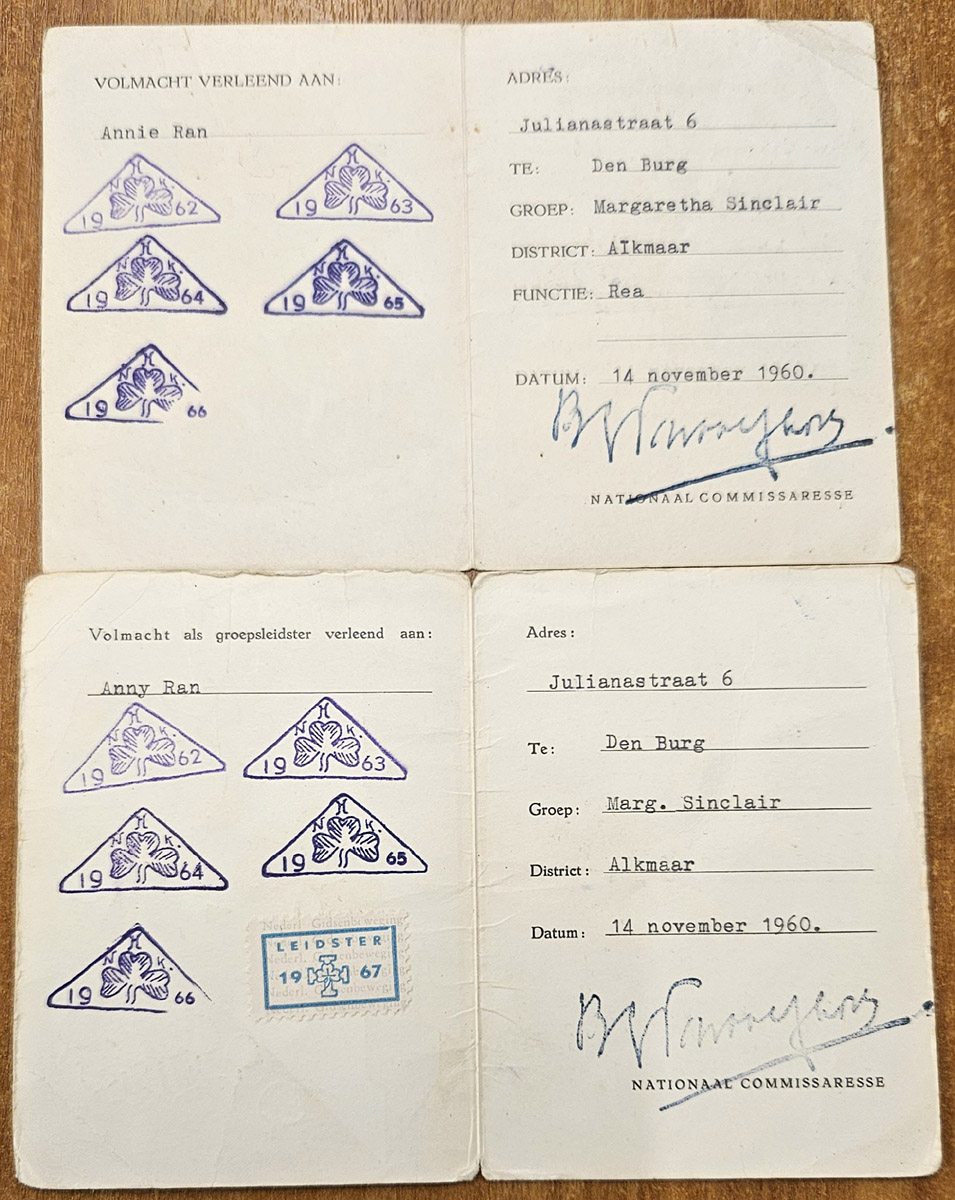 VOLMACHT VERLEEND AAN:
Annie Ran
N H K.
19 62
N H K.
19 63
N H K.
19 64
N H K.
19 65
N H K.
19 66
ADRES:
Julianastraat 6
TE: Den Burg
GROEP: Margaretha Sinclair
DISTRICT: Alkmaar
FUNCTIE: Rea
DATUM: 14 november 1960.
NATIONAAL COMMISSARESSE
Volmacht als groepsleidster verleend aan:
Anny Ran
N H K.
19 62
N H K.
19 63
N H K.
19 64
N H K.
19 65
N H K.
19 66
Nederl. Gidsenbeweging
LEIDSTER
19 67
Nederl. Gidsenbeweging
Adres:
Julianastraat 6
Te: Den Burg
Groep: Marg. Sinclair
District: Alkmaar
Datum: 14 november 1960.
NATIONAAL COMMISSARESSE